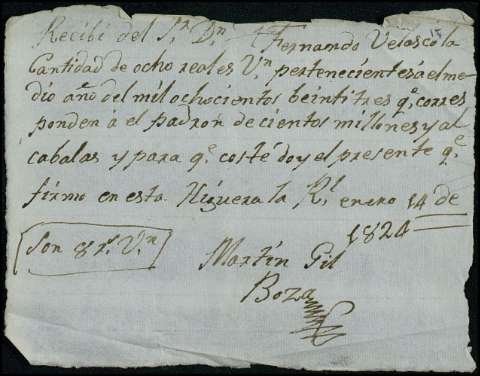 Recibi del S.r D.n Fernando Velasco la
Cantidad de ocho reales V.n pertenecientes á el me
dio año del mil ochocientos beintitres q.e corres
ponden á el padron de cientos millones y al
cabalas y para q.e coste doy el presente q.e
firmo en esta Higuera la R.l enero 14 de
1824
Son 8 r.s V.n
Martin Gil
Boza